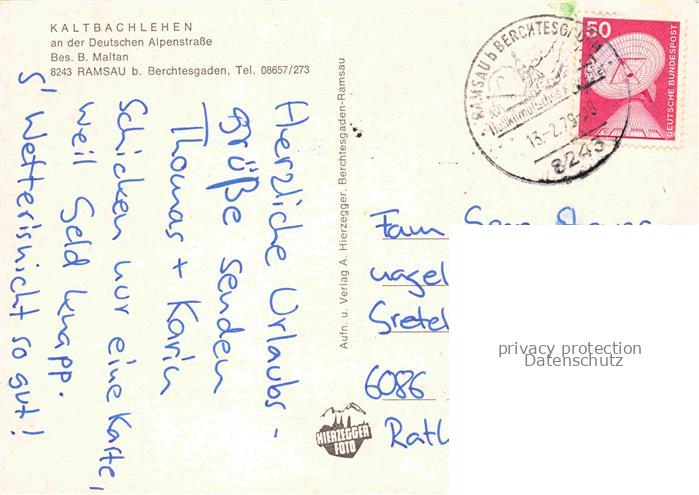 KALTBACHLEHEN
an der Deutschen Alpenstraße
Bes. B. Maltan
8243 RAMSAU b. Berchtesgaden, Tel. 08657/273
Herzliche Urlaubs-
grüße senden
Thomas + Karin
Schicken nur eine Karte,
weil Geld knapp.
S' Wetter is nicht so gut!
Aufn. u. Verlag A. Hierzegger, Berchtesgaden-Ramsau
HIERZEGGER
FOTO
RAMSAU b BERCHTESGADEN
13.-2.79
8243
50
DEUTSCHE BUNDESPOST
Fam
6086
privacy protection
Datenschutz